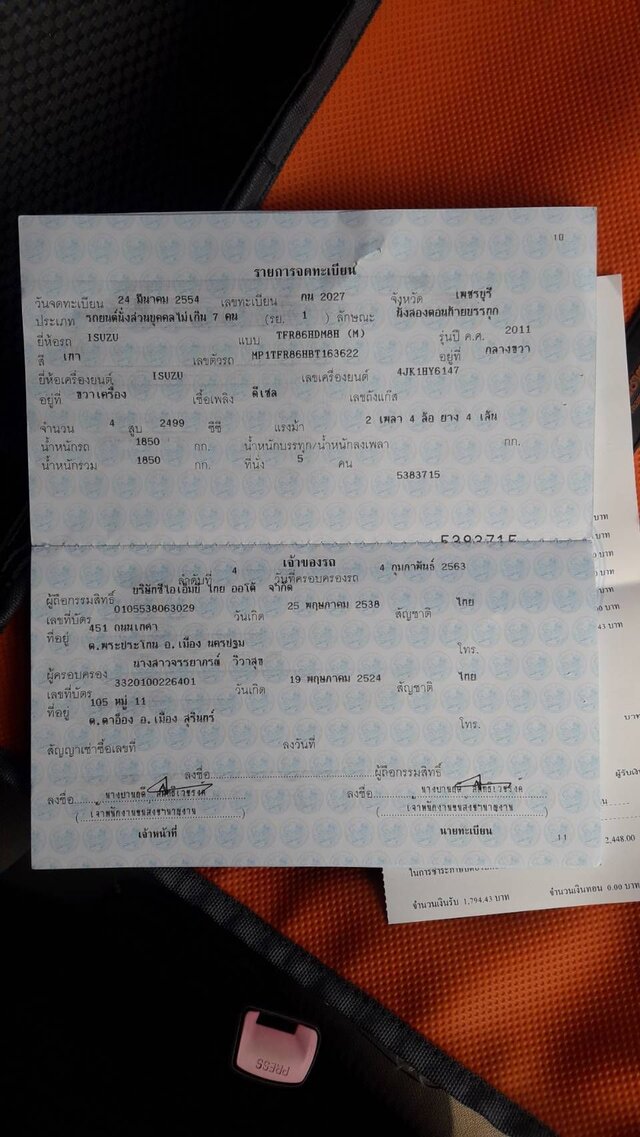 10
รายการจดทะเบียน
วันจดทะเบียน 24 มีนาคม 2554 เลขทะเบียน กน 2027 จังหวัด เพชรบุรี
ประเภท รถยนต์นั่งส่วนบุคคลไม่เกิน 7 คน (รย. 1 ) ลักษณะ นั่งสองตอนท้ายบรรทุก
ยี่ห้อรถ ISUZU แบบ TFR86HDM8H (M) รุ่นปี ค.ศ. 2011
สี เทา เลขตัวรถ MP1TFR86HBT163622 อยู่ที่ กลางขวา
ยี่ห้อเครื่องยนต์ ISUZU เลขเครื่องยนต์ 4JK1HY6147
อยู่ที่ ขวาเครื่อง เชื้อเพลิง ดีเซล เลขถังแก๊ส
จำนวน 4 สูบ 2499 ซีซี แรงม้า 2 เพลา 4 ล้อ ยาง 4 เส้น
น้ำหนักรถ 1850 กก. น้ำหนักบรรทุก/น้ำหนักลงเพลา กก.
น้ำหนักรวม 1850 กก. ที่นั่ง 5 คน
5383715
5383715
เจ้าของรถ
ลำดับที่ 4 วันที่ครอบครองรถ 4 กุมภาพันธ์ 2563
ผู้ถือกรรมสิทธิ์ บริษัทซีไอเอ็มบี ไทย ออโต้ จำกัด
เลขที่บัตร 0105538063029 วันเกิด 25 พฤษภาคม 2538 สัญชาติ ไทย
ที่อยู่ 451 ถนนเทศา
ต.พระประโทน อ.เมือง นครปฐม โทร.
ผู้ครอบครอง นางสาวจรรยาภรณ์ วิวาสุข
เลขที่บัตร 3320100226401 วันเกิด 19 พฤษภาคม 2524 สัญชาติ ไทย
ที่อยู่ 105 หมู่ 11
ต.ตาอ็อง อ.เมือง สุรินทร์ โทร.
สัญญาเช่าซื้อเลขที่ ลงวันที่
ลงชื่อ ผู้ถือกรรมสิทธิ์
ลงชื่อ ลงชื่อ
(เจ้าพนักงานขนส่งชำนาญงาน) (เจ้าพนักงานขนส่งชำนาญงาน)
เจ้าหน้าที่ นายทะเบียน
11
บาท
บาท
บาท
43 บาท
บาท
ผู้รับเงิน
2,448.00
จำนวนเงินรับ 1,794.43 บาท จำนวนเงินทอน 0.00 บาท
PRESS